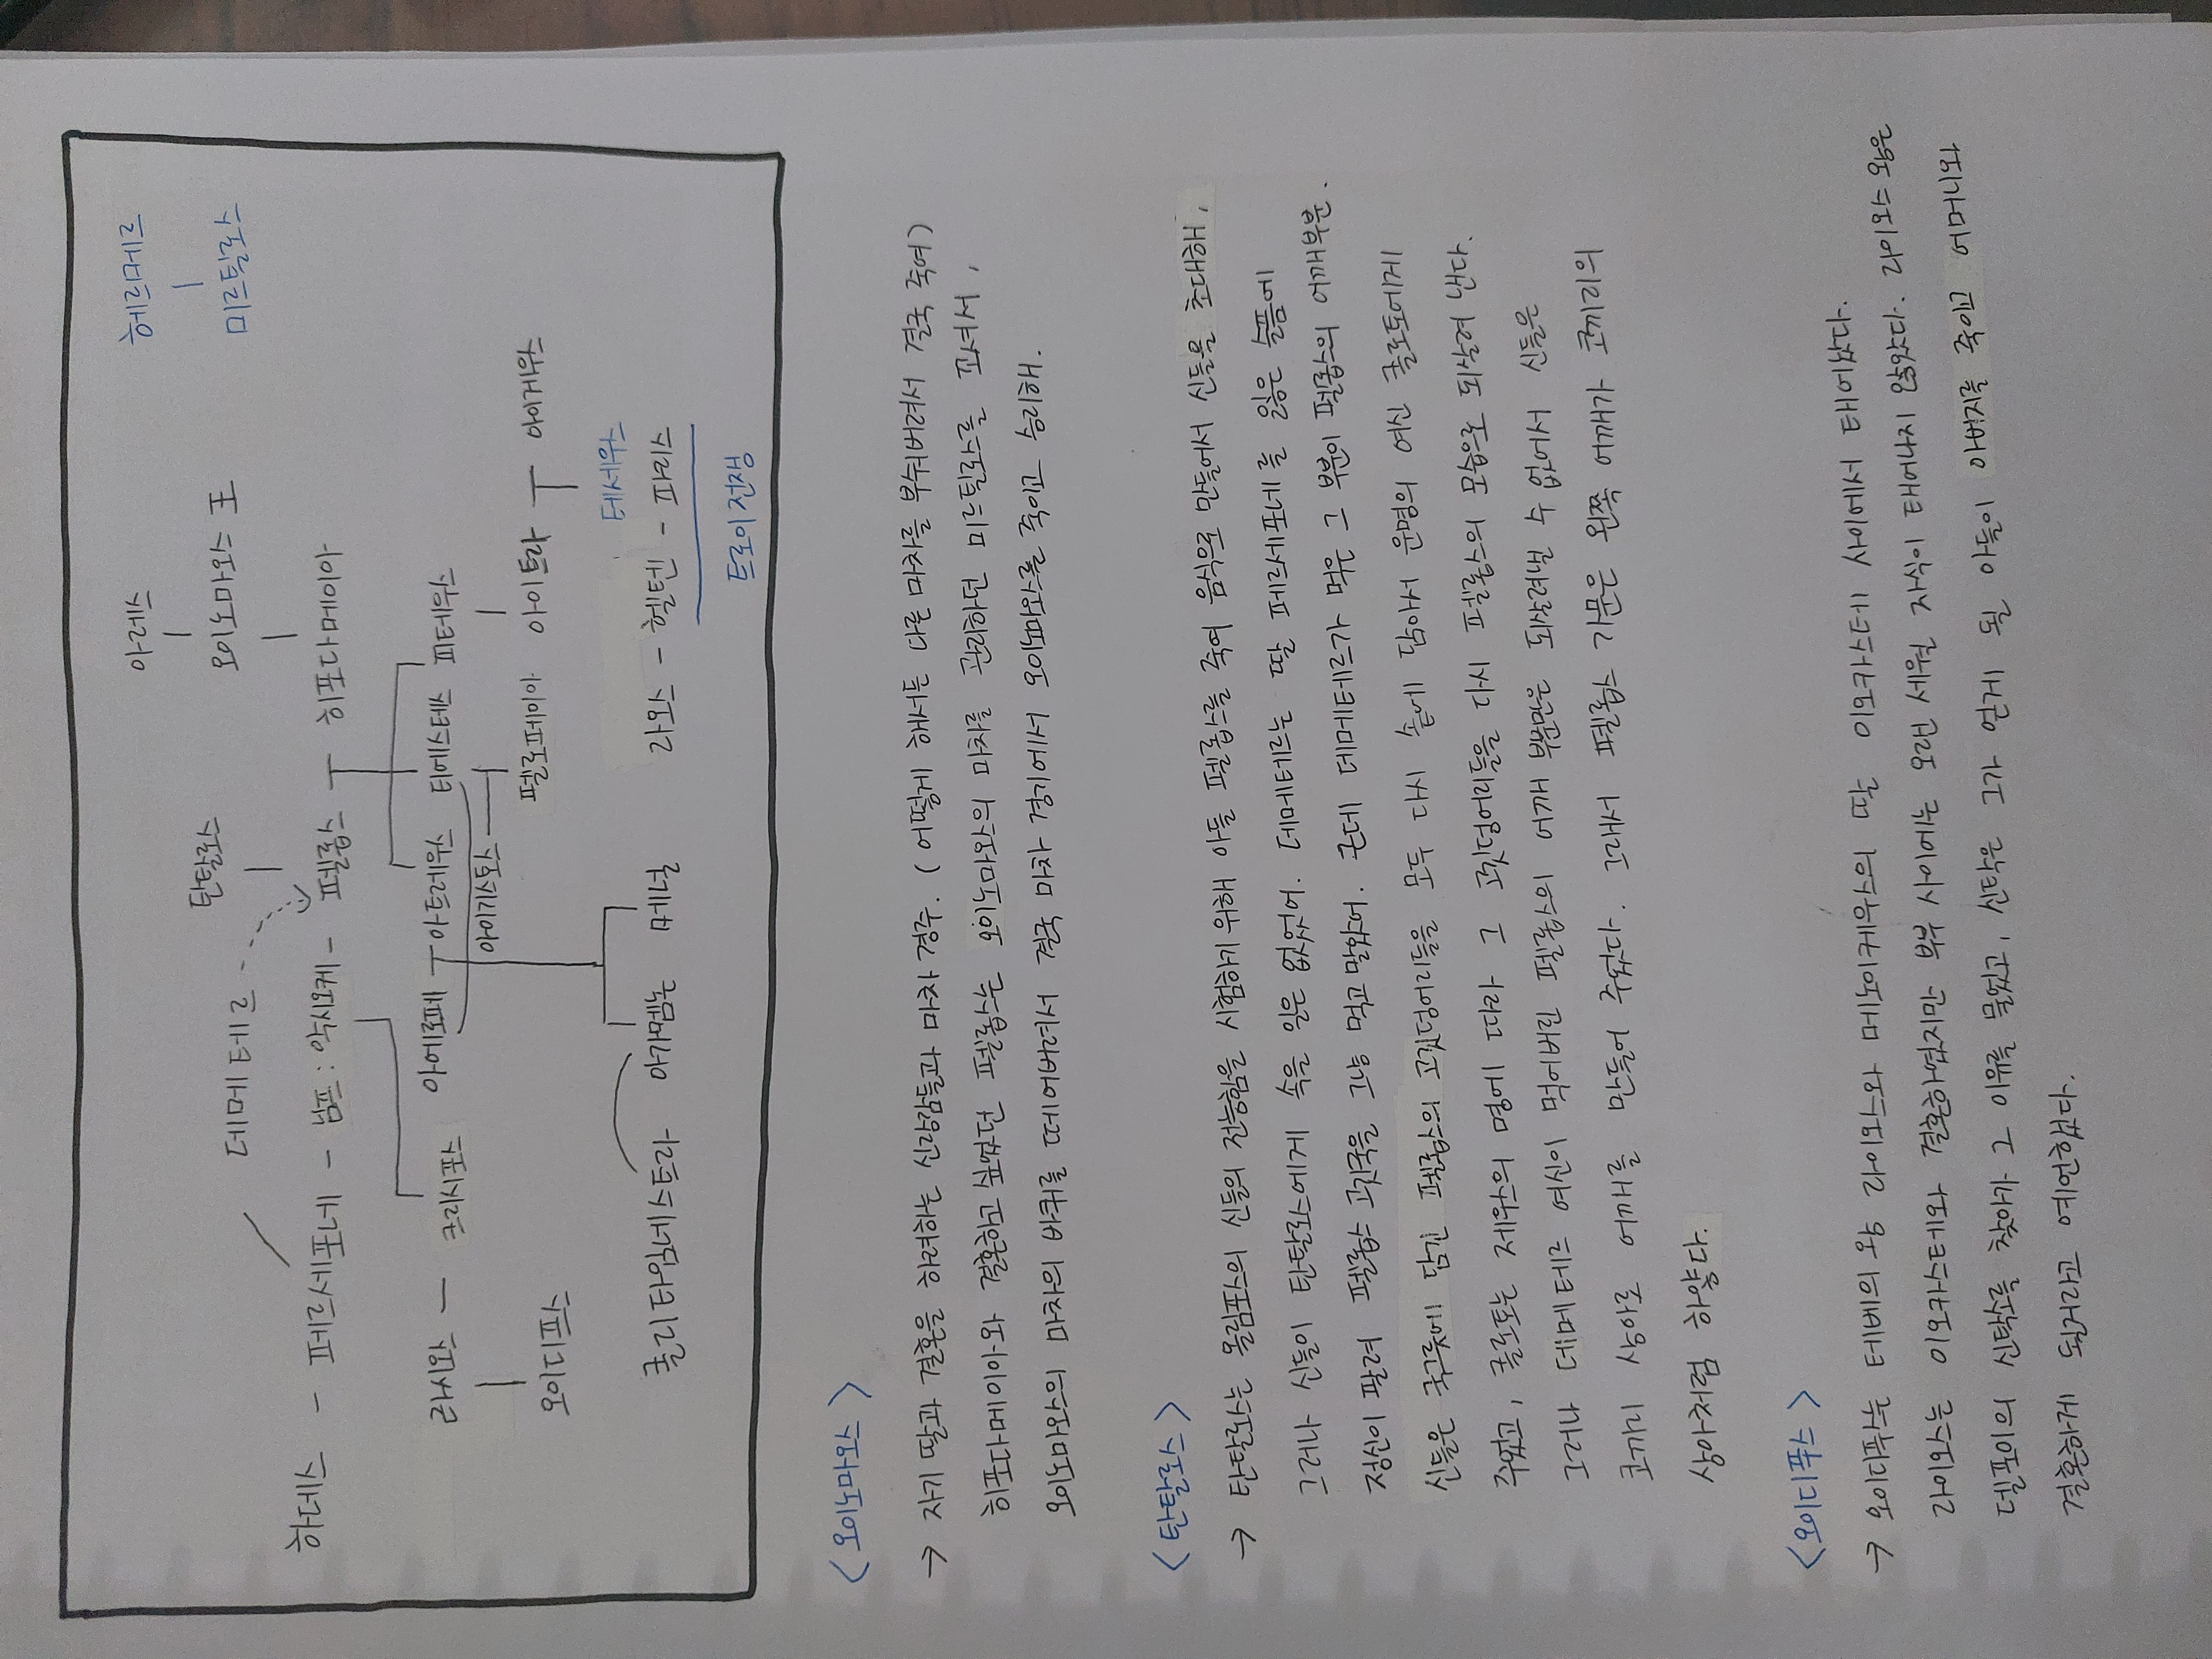 아레스 헤르메르
탄탈로스 오이노마오스 王 미르틸로스
데메테르
하데스 - 페르세포네 - 님프 : 악시오케 - 펠롭스 ㅜ 히포다메이아
라시오스 - 크리시포스 아에로페 ㅜ 아트레우스 티에스테스 피테우스
아이기스토스
오이디푸스 펠로페이아 아이트라 ㅜ 아이게우스
테세우스
클리타임네스트라 아가멤논 메넬 라오스 - 헬텐 - 파리스
트로이 전쟁
<오이노마오스>
→ 자기 딸과 결혼을 하려하는 신랑감들과 마차 경주. (어떻게 해서든 다른 마차를 부숴버려서 결국 죽여)
히포다메이아와 결혼하고 싶었던 펠롭스는 오이노마오스의 마차를 관리하던 미르틸로스를 꼬셔서,
오이노마오스의 마차의 바퀴를 떼어버려서 결국 마차 경기에서 오이노마오스를 죽이고 승리해.
<탄탈로스>
→ 탄탈로스는 올림포스의 신들의 전능함을 시험하기 위해 아들 펠롭스를 죽여 음식으로 만들어서 신들을 초대해,
그러나 신들이 탄탈로스에게 속을 일은 없었어. 데메테르는 딸 페르세포네를 잃은 슬픔에
정신이 팔려 펠롭스 고깃국을 그냥 먹고 말았어. 근데 데메테르가 먹은 그 부분이 펠롭스의 어깨부분.
신들은 국솥에 담긴 펠롭스의 고깃덩어리들을 모두 다시 솥에 담아서 운명의 여신 클로토에게
주었고, 클로토는 제우스의 명에 따라 그 고깃덩어리들을 다시 펠롭스의 모습으로 되살려 낸다.
그러나 데메테르 여신이 먹어버린 펠롭스의 어깨 부분만은 되살려낼 수 없어서 신들은
코끼리 상아로 어깨를 만들어 주었다. 그래서 펠롭스 가문은 왼쪽 어깨가 코끼리의
상아처럼 하얗다.
<오이디푸스>
→ 오이디푸스는 테베의 왕 라이오스와 메노이케우스의 딸 이오카스테 사이에서 태어났다.
라이오스는 이오카스테와 결혼하였지만 부부 사이에는 오랜 세월 자식이 태어나지 않았다. 라이오스 왕은
델포이의 신탁소를 찾아가 그 이유를 물었고, 신탁은 그가 얻게 될 아들이 아버지를 죽이고 어머니와
결혼하게 되리라고 예언했다.